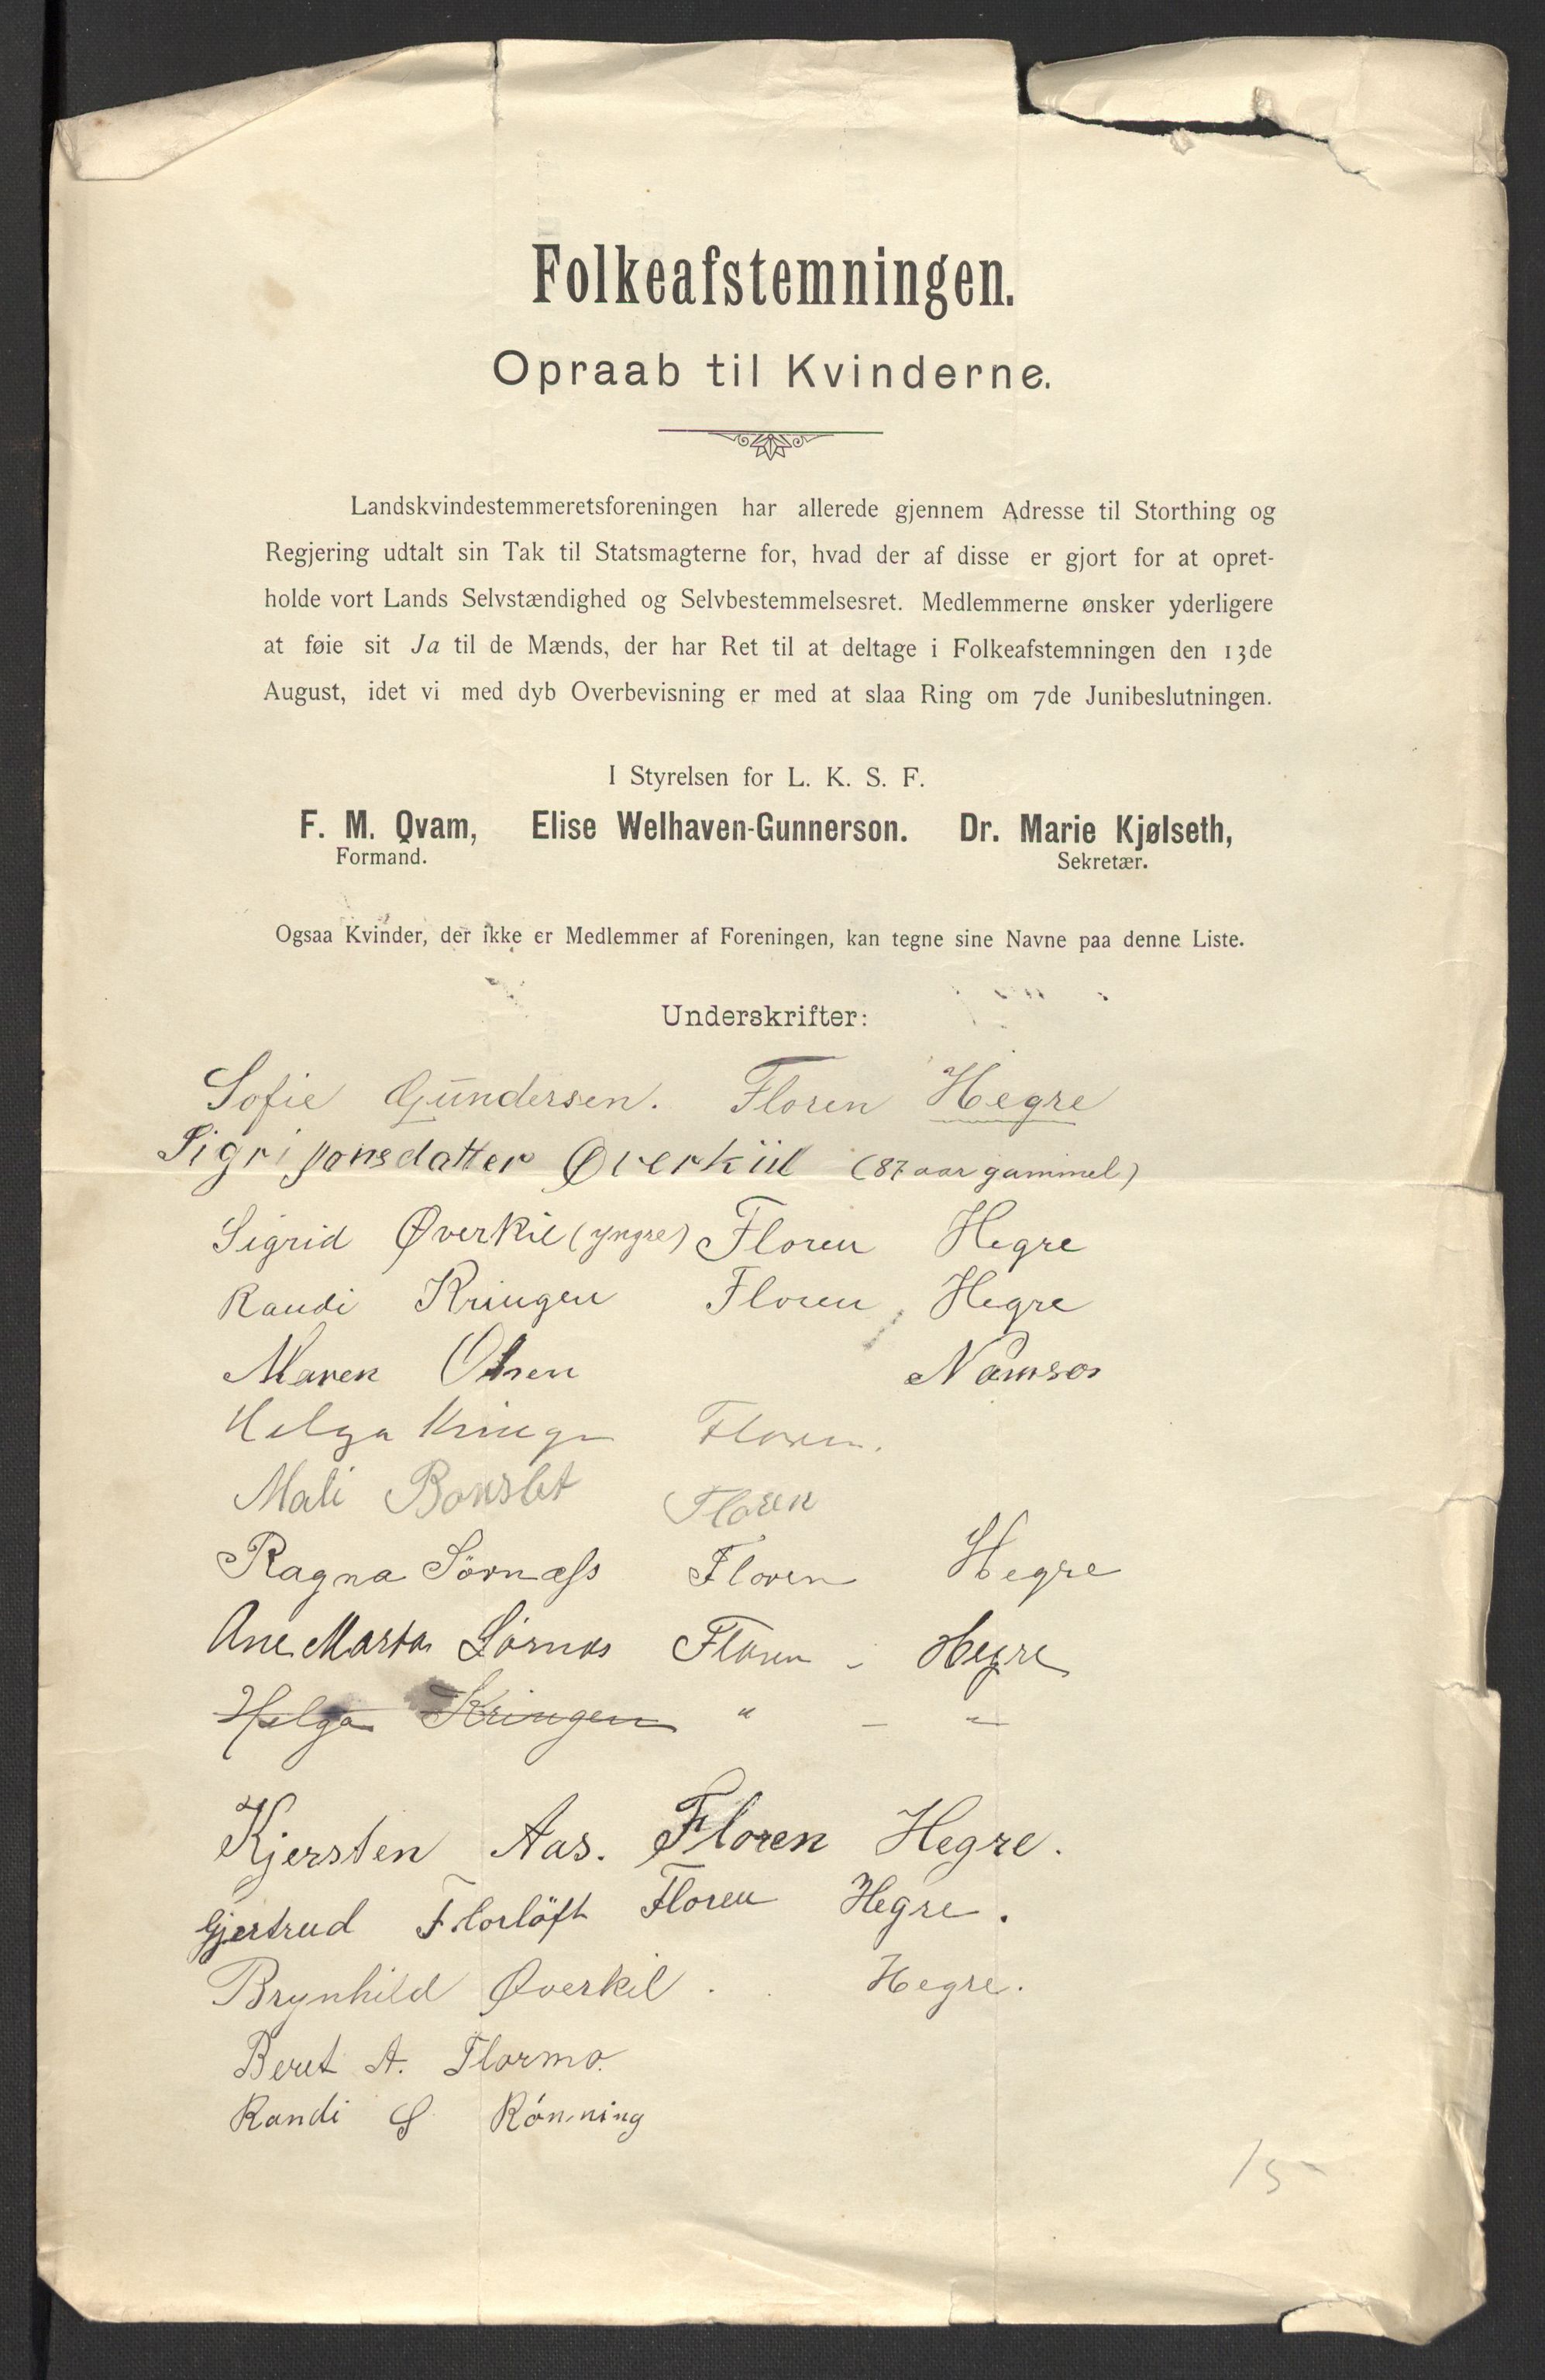 Folkeafstemningen.
Opraab til Kvinderne.
Landskvindestemmeretsforeningen har allerede gjennem Adresse til Storthing og
Regjering udtalt sin Tak til Statsmagterne for, hvad der af disse er gjort for at opret-
holde vort Lands Selvstændighed og Selvbestemmelsesret. Medlemmerne ønsker yderligere
at føie sit Ja til de Mænds, der har Ret til at deltage i Folkeafstemningen den 13de
August, idet vi med dyb Overbevisning er med at slaa Ring om 7de Junibeslutningen.
I Styrelsen for L. K. S. F.
F. M. Qvam, Elise Welhaven-Gunnerson. Dr. Marie Kjølseth,
Formand. Sekretær.
Ogsaa Kvinder, der ikke er Medlemmer af Foreningen, kan tegne sine Navne paa denne Liste.
Underskrifter:
Sofie Gundersen. Floren Hegre
Sigri Jonsdatter Øverkiil (87 aar gammel)
Sigrid Øverkil (yngre) Floren Hegre
Randi Kringen Floren, Hegre
Maren Olsen Namsos
Helga Kringen Floren.
Mali Floren
Ragna Sörnæss Floren Hegre
Ane Marta Sörnes Floren - Hegre
Helga Kringen " — "
Kjersten Aas. Floren Hegre.
Gjertrud Florlöft Floren Hegre.
Brynhild Øverkil. Hegre.
Beret A. Flormo.
Randi Rónning
15